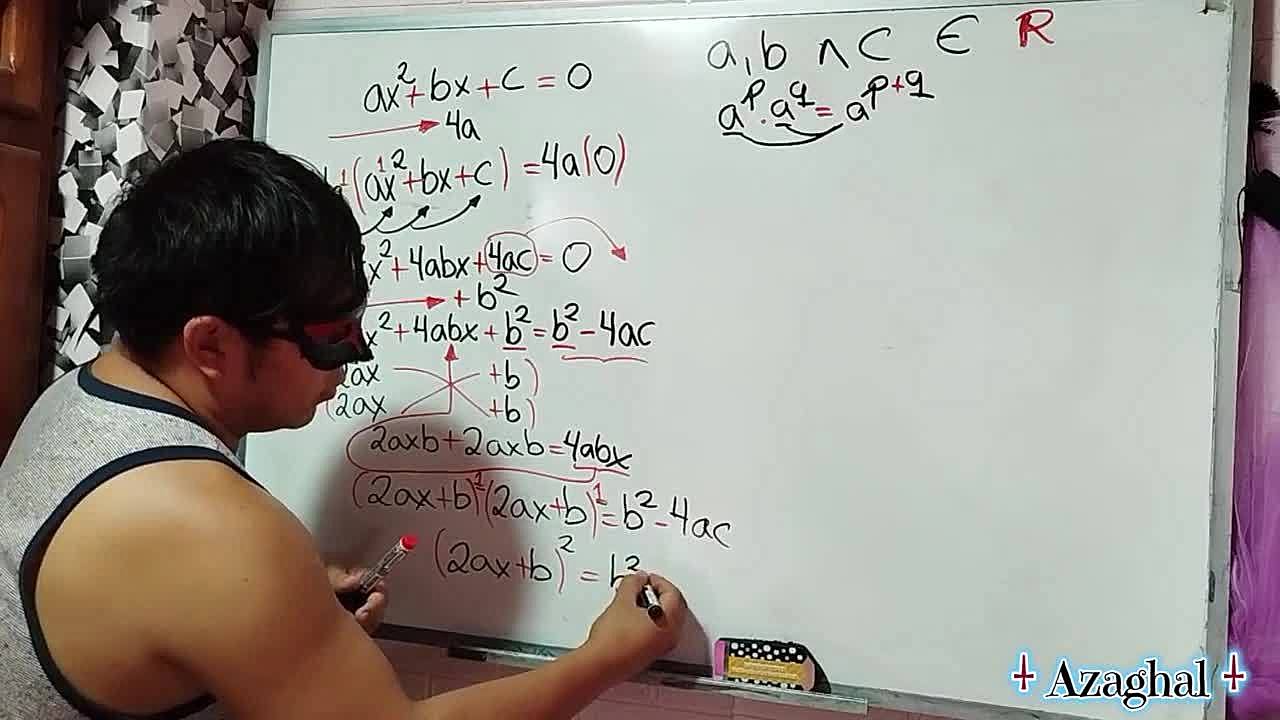 ax² + bx + c = 0
4a
(a¹x² + bx + c) = 4a(0)
x² + 4abx + 4ac = 0
+ b²
x² + 4abx + b² = b² - 4ac
2ax +b)
(2ax +b)
2axb + 2axb = 4abx
(2ax+b)¹(2ax+b)¹ = b² - 4ac
(2ax+b)² = b²
a, b ∧ C ∈ R
aᵖ · a^q = a^(p+q)
Azaghal